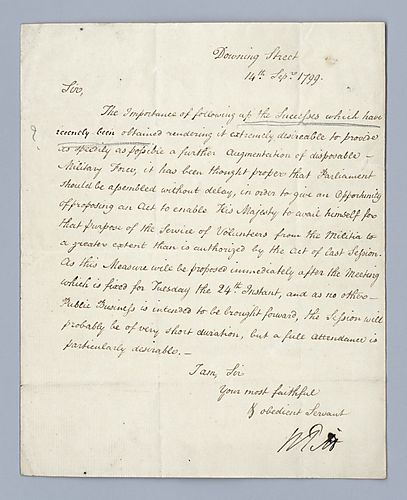 Downing Street
14th Sepr. 1799.
Sir,
The Importance of following up the Successes which have
recently been obtained rendering it extremely desireable to provide
as speedily as possible a further Augmentation of disposable –
Military Force, it has been thought proper that Parliament
should be assembled without delay, in order to give an Opportunity
of proposing an Act to enable His Majesty to avail himself for
that purpose of the Service of Volunteers from the Militia to
a greater extent than is authorized by the Act of last Session.
As this Measure will be proposed immediately after the Meeting
which is fixed for Tuesday the 24th Instant, and as no other –
Public Business is intended to be brought forward, the Session will
probably be of very short duration, but a full attendance is
particularly desirable. –
I am, Sir
Your most faithful
& obedient Servant
W Pitt